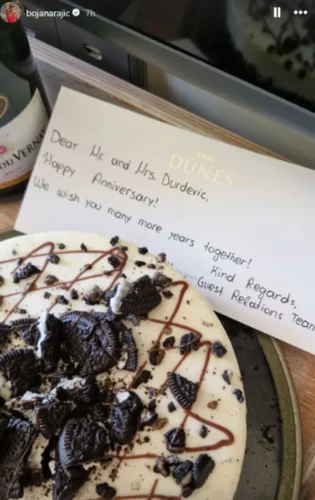 bojanarajic 7h
DUNES
Dear Mr. and Mrs. Durdevic,
Happy Anniversary!
We wish you many more years together!
Kind Regards,
Guest Relations Team